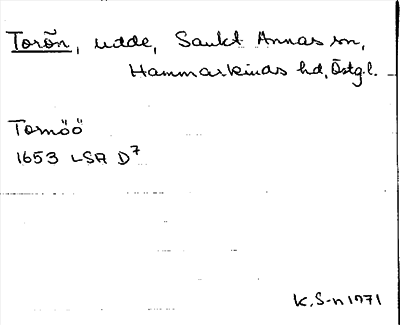 Torön, udde, Sankt Annas sn,
Hammarkinds hd, Östg.l.
Tornöö
1653 LSA D7
K.S-n 1971